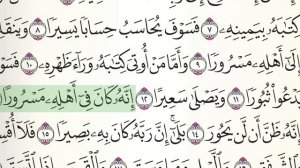 كِتَٰبَهُۥ بِيَمِينِهِۦ ٧ فَسَوْفَ يُحَاسَبُ حِسَابًا يَسِيرًا ٨
إِلَىٰٓ أَهْلِهِۦ مَسْرُورًا ٩ وَأَمَّا مَنْ أُوتِىَ كِتَٰبَهُۥ وَرَآءَ ظَهْرِهِۦ ١٠
يَدْعُوا۟ ثُبُورًا ١١ وَيَصْلَىٰ سَعِيرًا ١٢ إِنَّهُۥ كَانَ فِىٓ أَهْلِهِۦ مَسْرُورًا
إِنَّهُۥ ظَنَّ أَن لَّن يَحُورَ ١٤ بَلَىٰٓ إِنَّ رَبَّهُۥ كَانَ بِهِۦ بَصِيرًا ١٥ فَلَآ